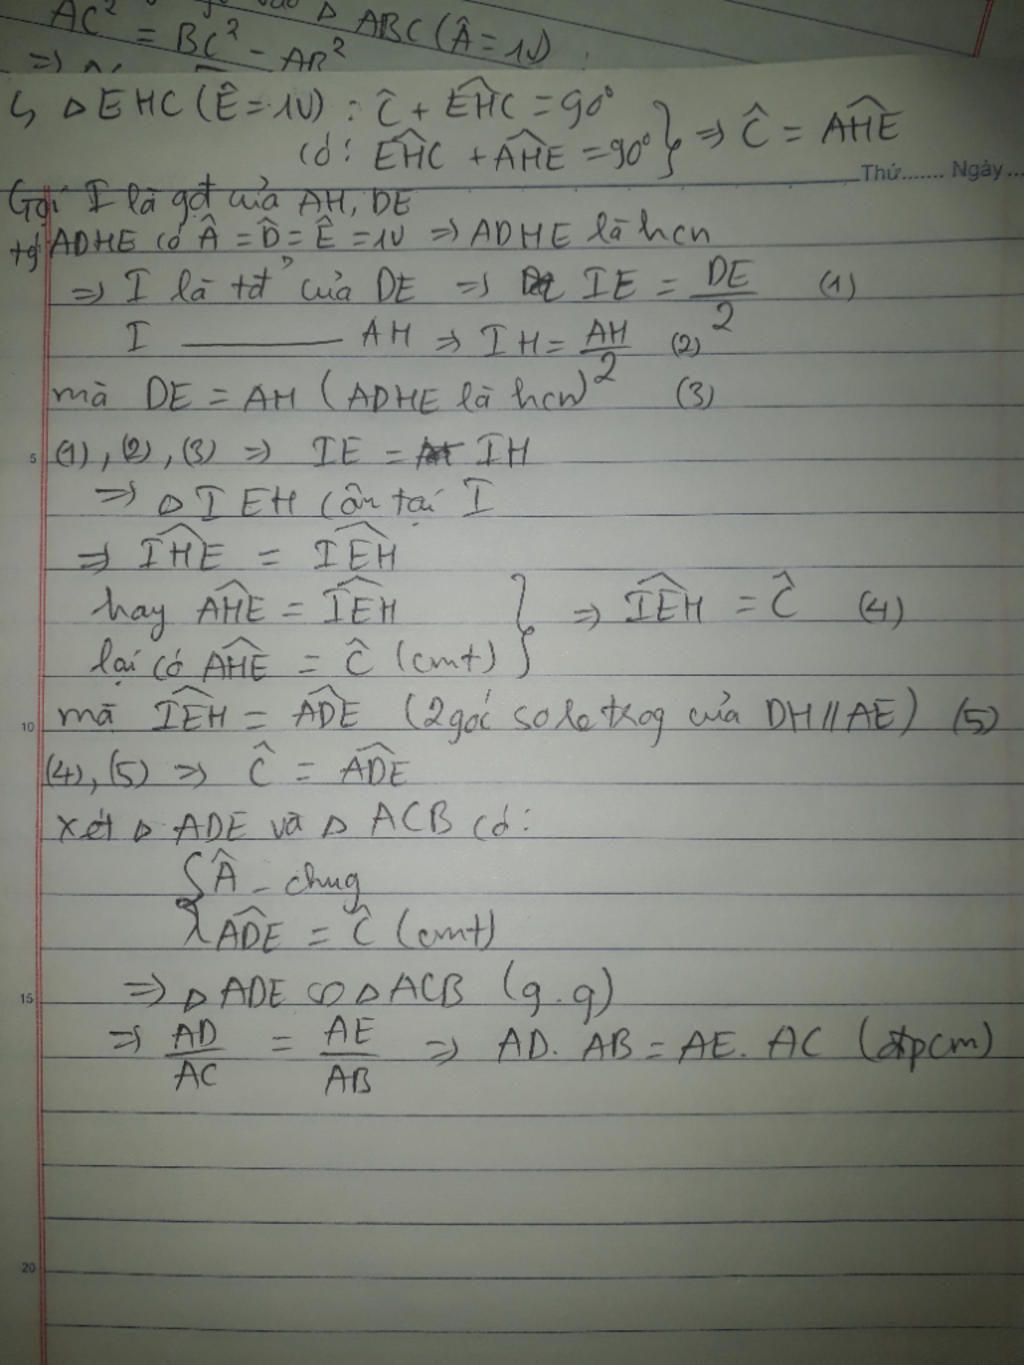 AC² = BC² - AB²
△ ABC (Â = 1V)
△ EHC (Ê = 1V) : Ĉ + \widehat{EHC} = 90°
có: \widehat{EHC} + \widehat{AHE} = 90° } ⇒ Ĉ = \widehat{AHE}
Thứ....... Ngày ...
Gọi I là gđ của AH, DE
tg ADHE có Â = D̂ = Ê = 1V ⇒ ADHE là hcn
⇒ I là tđ của DE ⇒ IE = DE/2 (1)
I ——— AH ⇒ IH = AH/2 (2)
mà DE = AH (ADHE là hcn) (3)
5 (1), (2), (3) ⇒ IE = IH
⇒ △ IEH cân tại I
⇒ \widehat{IHE} = \widehat{IEH}
hay \widehat{AHE} = \widehat{IEH} } ⇒ \widehat{IEH} = Ĉ (4)
lại có \widehat{AHE} = Ĉ (cmt)
10 mà \widehat{IEH} = \widehat{ADE} (2 góc so le trog của DH // AE) (5)
(4), (5) ⇒ Ĉ = \widehat{ADE}
Xét △ ADE và △ ACB có:
{ Â - chug
\widehat{ADE} = Ĉ (cmt)
15 ⇒ △ ADE ∽ △ ACB (g.g)
⇒ AD/AC = AE/AB ⇒ AD. AB = AE. AC (đpcm)
20